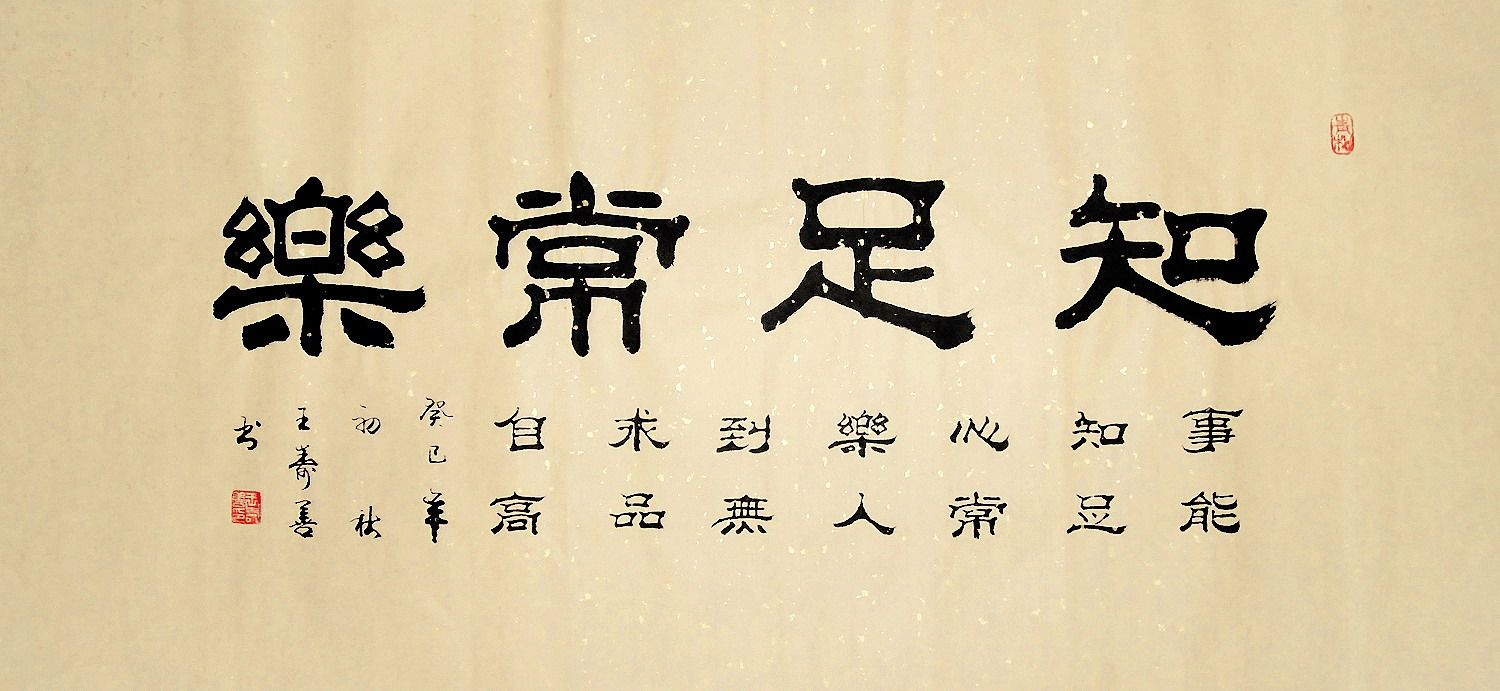 知足常樂
事能
知足
心常
樂人
到無
求品
自高
癸巳年
初秋
王壽善
书